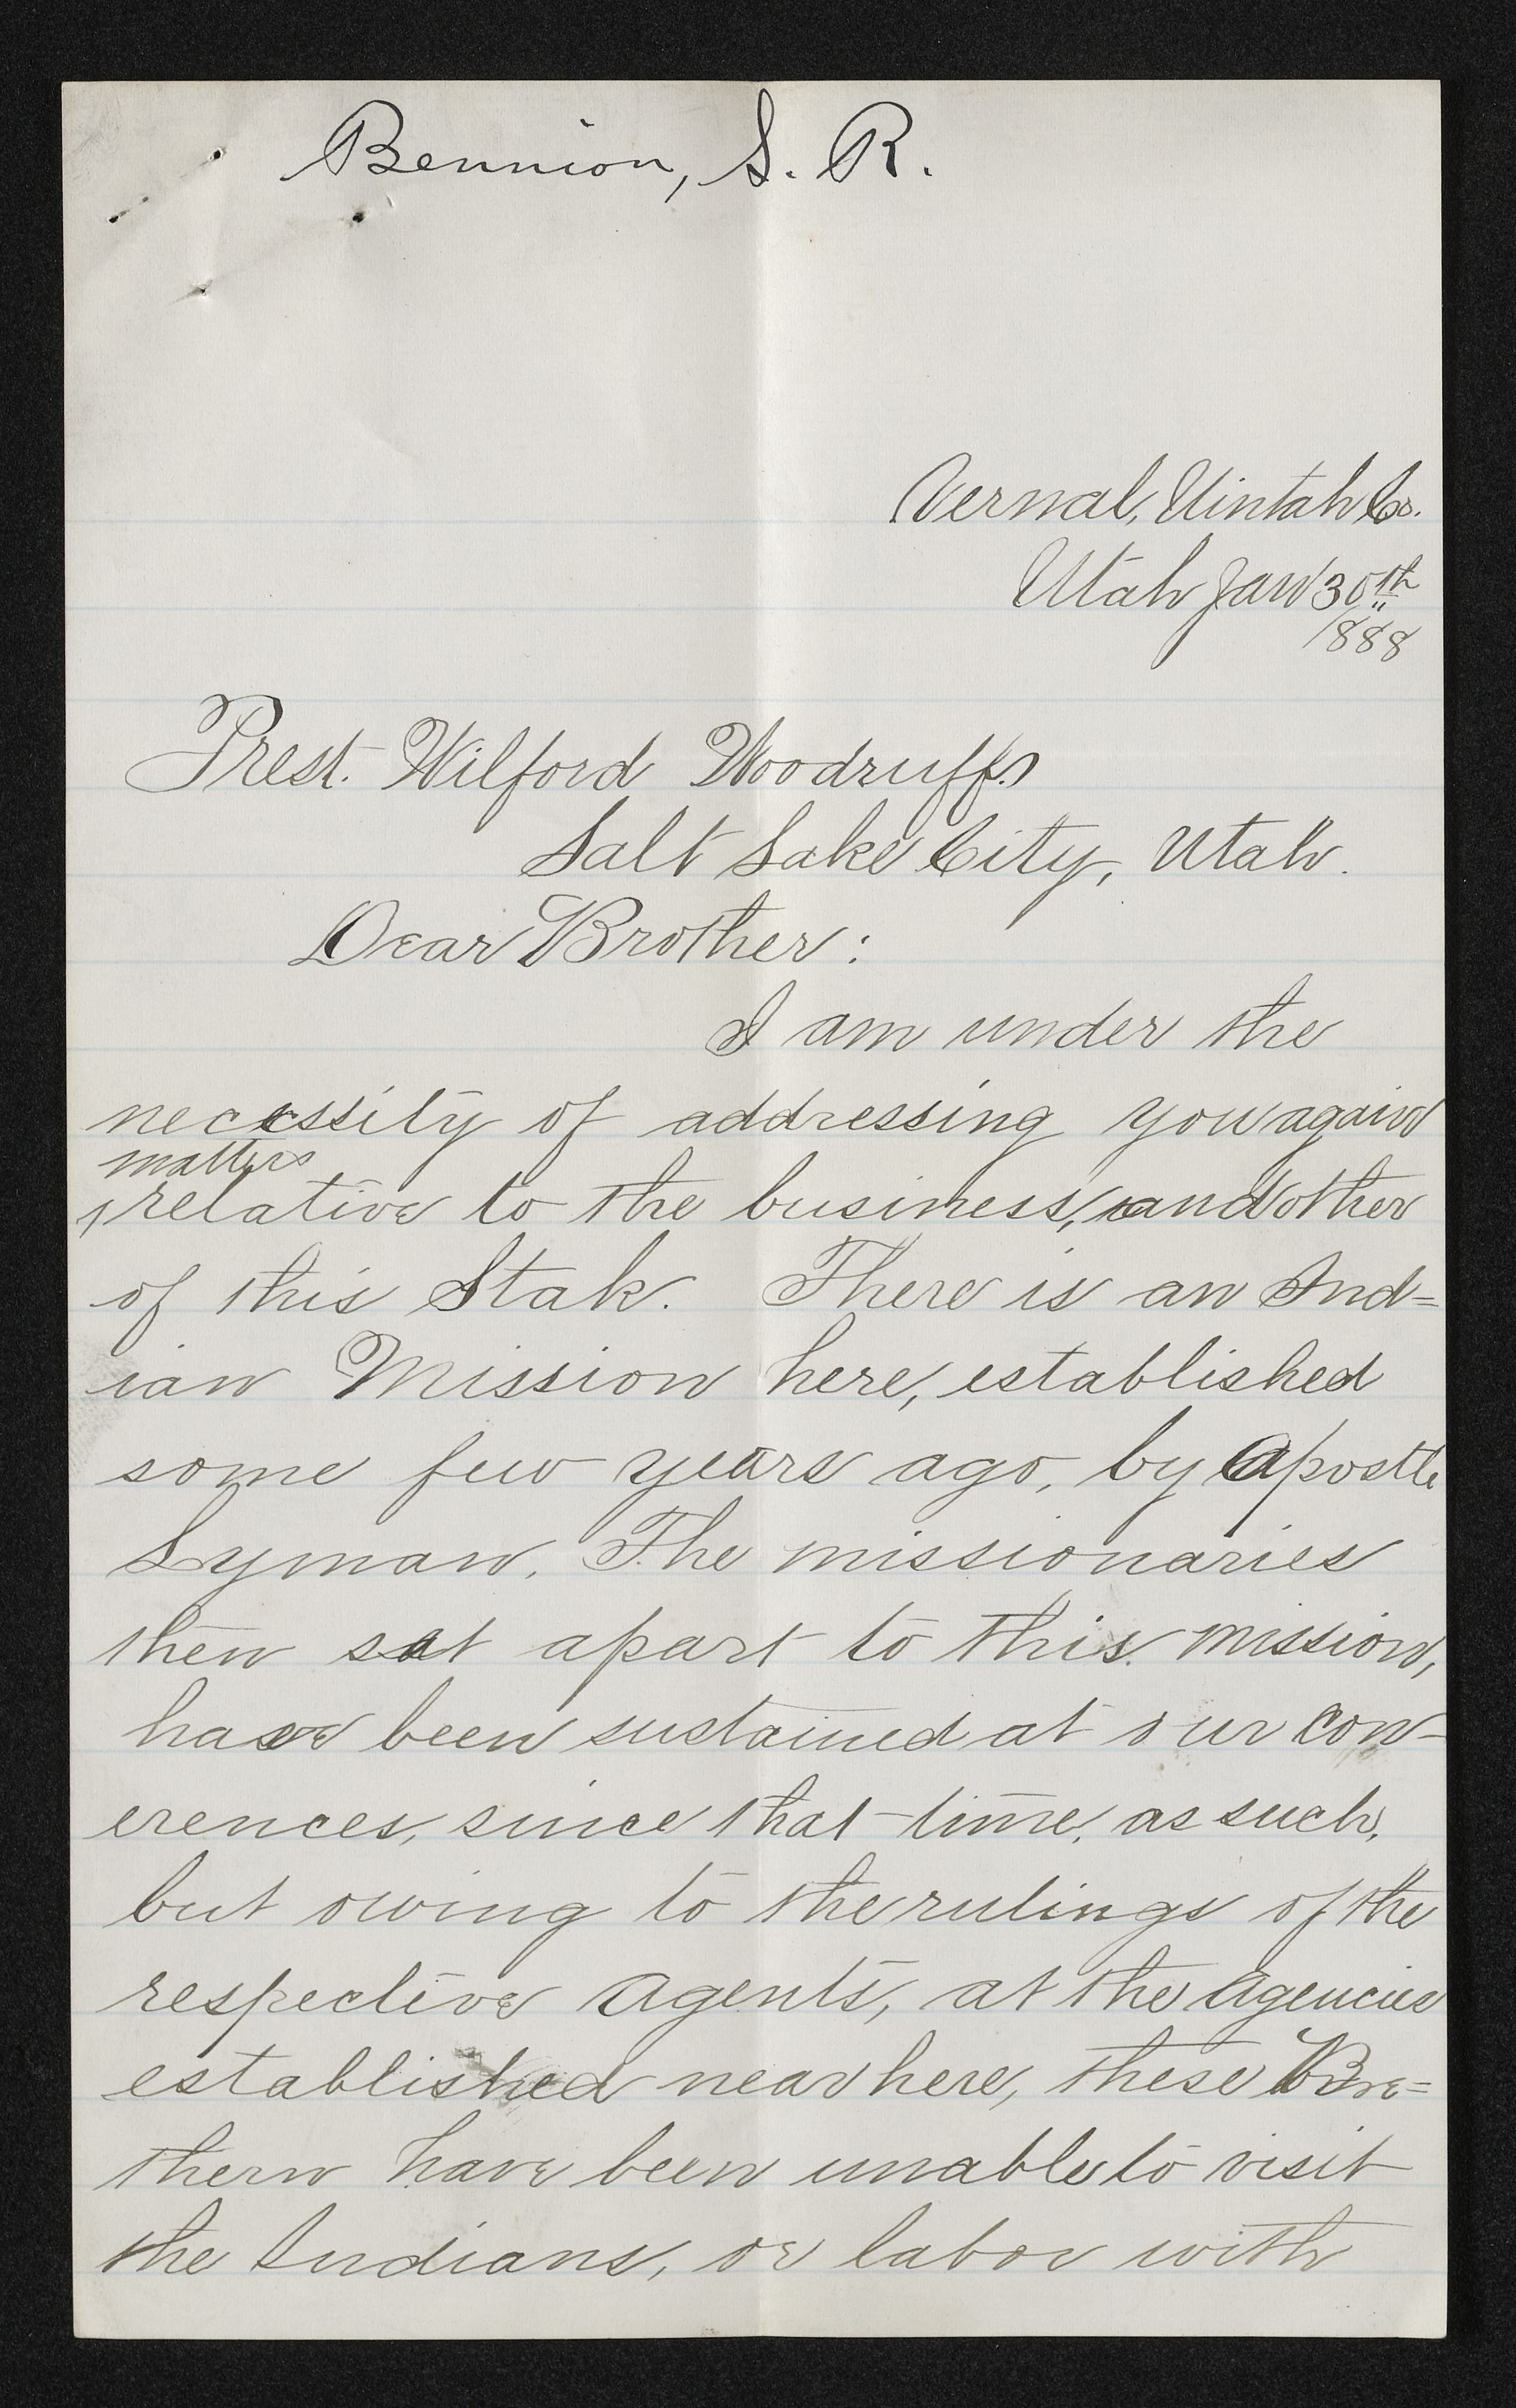 Bennion, S. R.
Vernal, Uintah Co.
Utah Jan 30th
1888
Prest. Wilford Woodruff.
Salt Lake City, Utah.
Dear Brother:
I am under the
necessity of addressing you again
matters
relative to the business, and other
of this Stak. There is an Ind=
ian Mission here, established
some few years ago, by Apostle
Lyman. The missionaries
then set apart to this mission,
have been sustained at our con-
erences, since that time, as such,
but owing to the rulings of the
respective agents, at the agencies
established near here, these Bre=
thern have been unable to visit
the Indians, or labor with